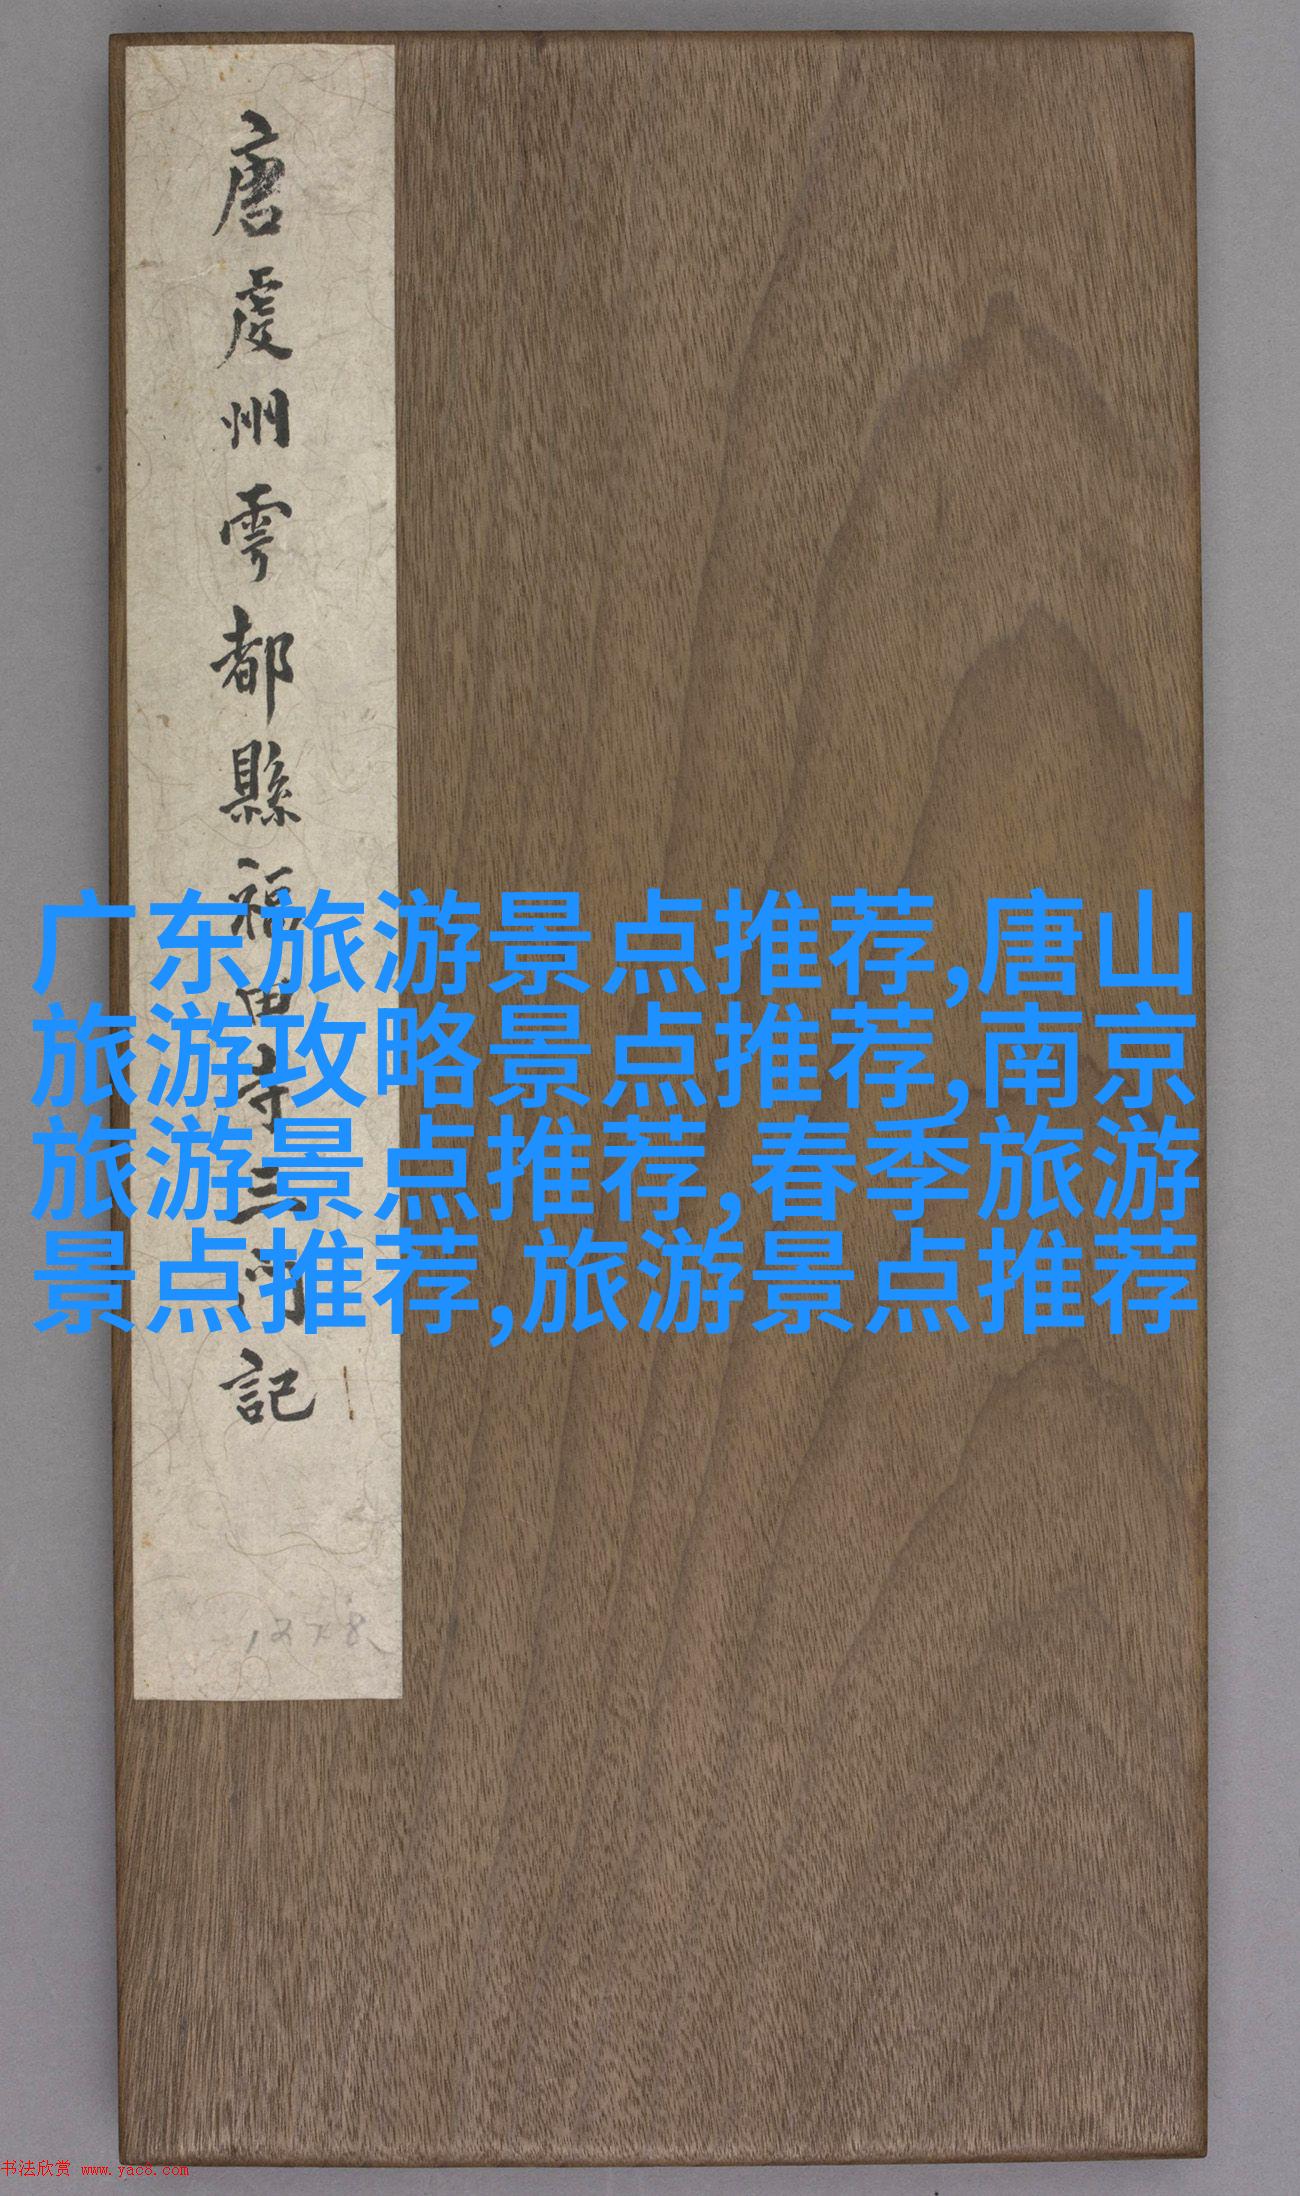 唐虔州雩都縣福田寺三門記
1278
广东旅游景点推荐,唐山
旅游攻略景点推荐,南京
旅游景点推荐,春季旅游
景点推荐,旅游景点推荐
书法欣赏 www.yac8.com